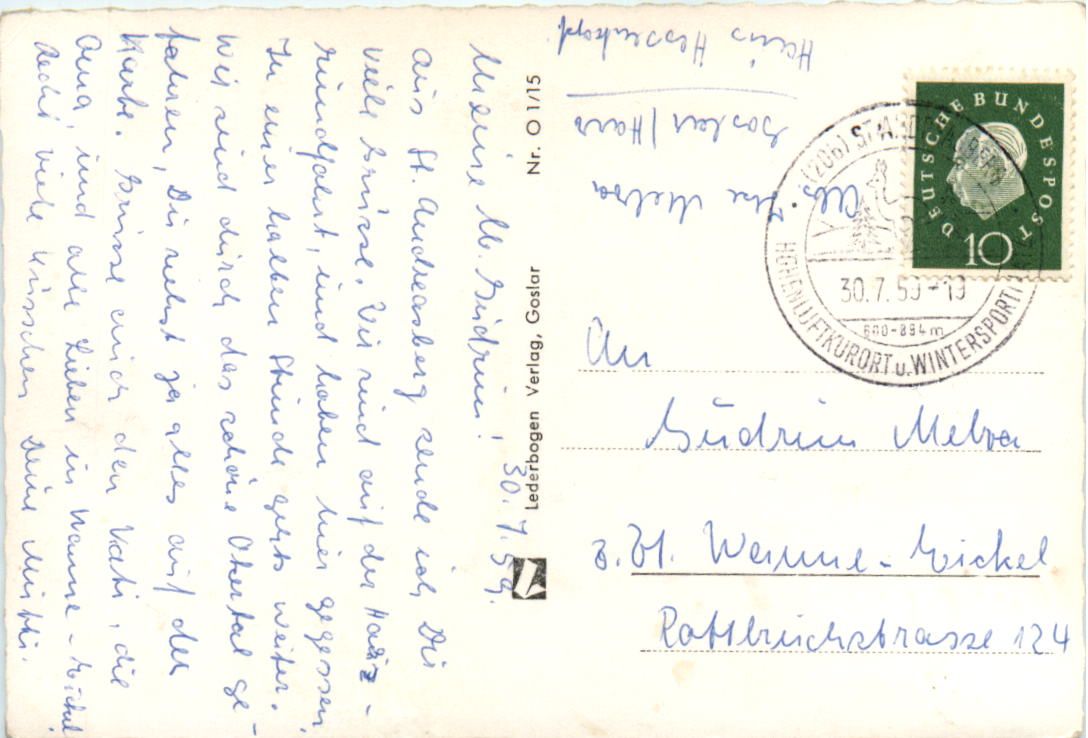 30.7.59.
Meine l. Gudrun!
Aus St. Andreasberg sende ich Dir
viele Grüsse. Wir sind auf der Harz-
rundfahrt, und haben hier gegessen,
In einer halben Stunde gehts weiter.
Wir sind durch das schöne Okertal ge-
fahren, Du siehst ja alles auf der
Karte. Grüsse auch den Vati, die
Oma, und alle Lieben in Wanne-Eickel
Recht viele Küsschen Deine Mutti.
Nr. O 1/15
Lederbogen Verlag, Goslar
Abs. Melva
Goslar/Harz
Haus Hessenkopf.
DEUTSCHE BUNDESPOST
10
HÖHENLUFTKURORT u. WINTERSPORT
30.7.59-19
600-894m
An
Gudrun Melva
z. Zt. Wanne-Eickel
Rottbruchstrasse 124